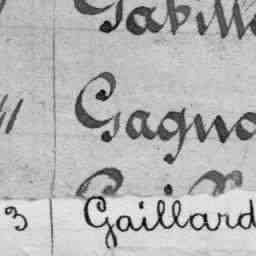 Gabill
41 Gagno
3 Gaillard